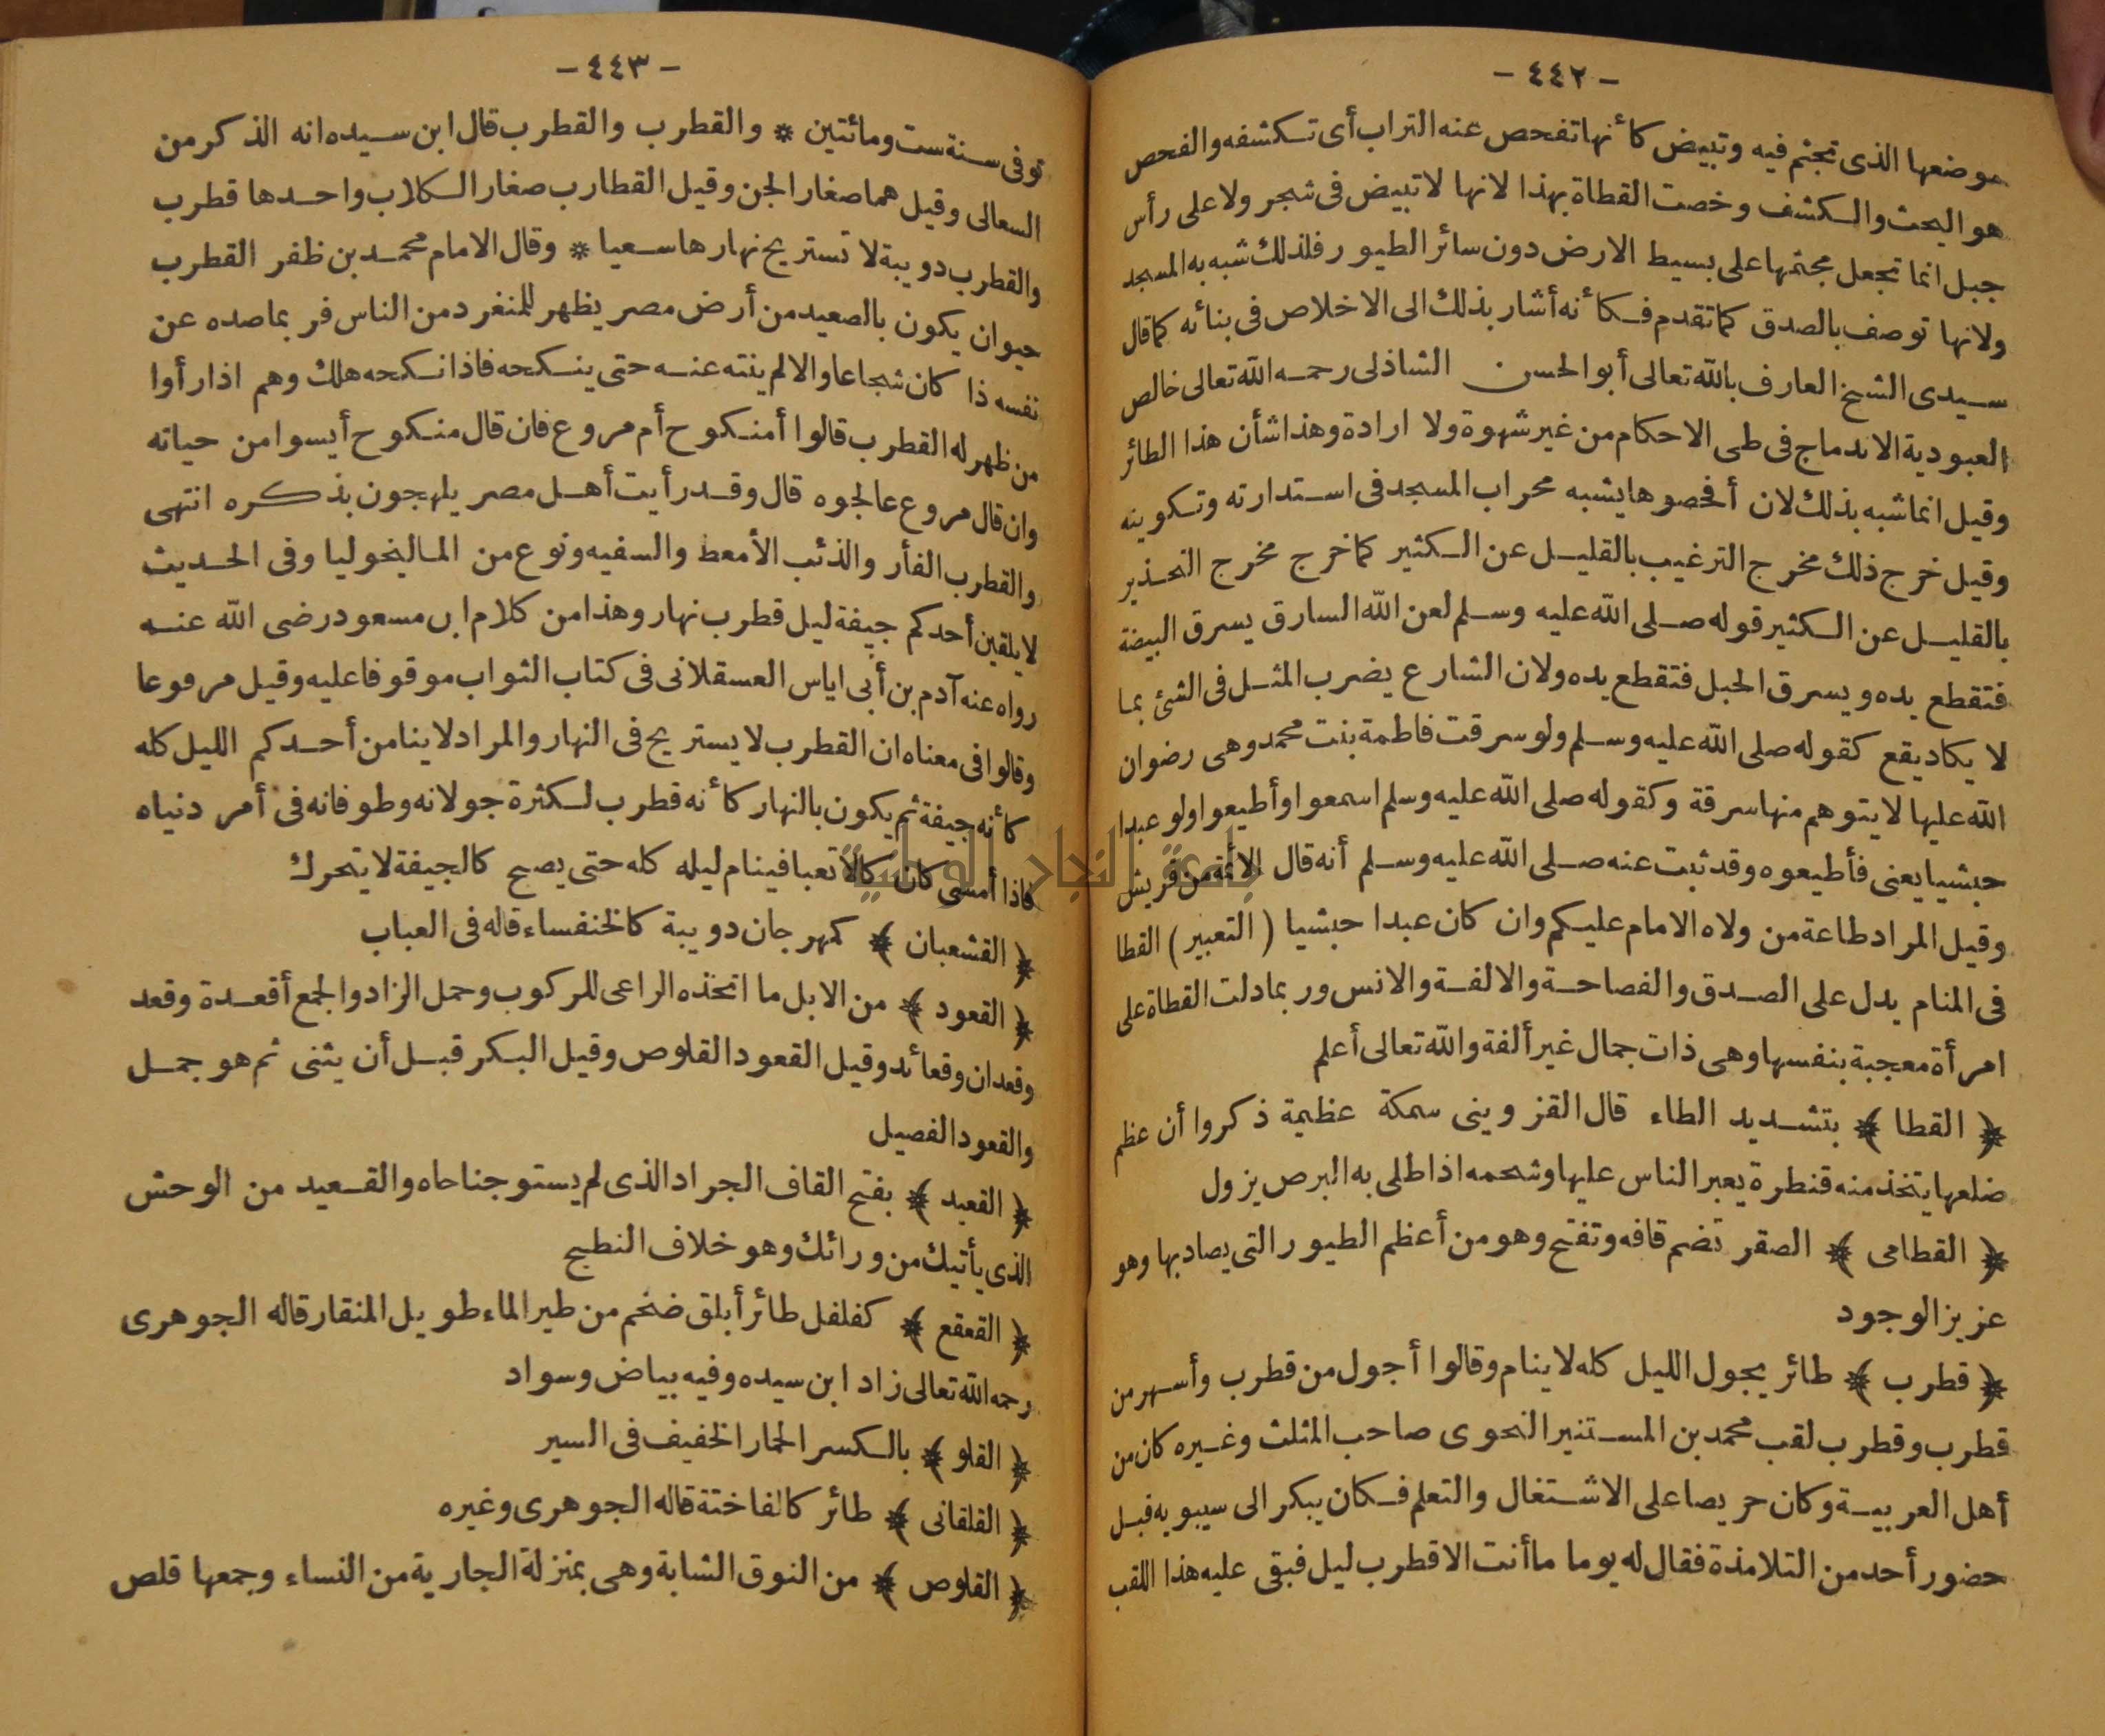 - ٤٤٢ -
موضعها الذى تجثم فيه وتبيض كأنها تفحص عنه التراب أى تكشفه والفحص
هو البحث والكشف وخصت القطاة بهذا لانها لا تبيض فى شجر ولا على رأس
جبل انما تجعل مجثمها على بسيط الارض دون سائر الطيور فلذلك شبه به المسجد
ولانها توصف بالصدق كما تقدم فكأنه أشار بذلك الى الاخلاص فى بنائه كما قال
سيدى الشيخ العارف بالله تعالى أبو الحسن الشاذلى رحمه الله تعالى خالص
العبودية الاندماج فى طى الاحكام من غير شهوة ولا ارادة وهذا شأن هذا الطائر
وقيل انما شبه بذلك لان أفحوصها يشبه محراب المسجد فى استدارته وتكوينه
وقيل خرج ذلك مخرج الترغيب بالقليل عن الكثير كما خرج مخرج التحذير
بالقليل عن الكثير قوله صلى الله عليه وسلم لعن الله السارق يسرق البيضة
فتقطع يده ويسرق الحبل فتقطع يده ولان الشارع يضرب المثل فى الشئ بما
لا يكاد يقع كقوله صلى الله عليه وسلم ولو سرقت فاطمة بنت محمد وهى رضوان
الله عليها لا يتوهم منها سرقة وكقوله صلى الله عليه وسلم اسمعوا وأطيعوا ولو عبدا
حبشيا يعنى فأطيعوه وقد ثبت عنه صلى الله عليه وسلم أنه قال الأئمة من قريش
وقيل المراد طاعة من ولاه الامام عليكم وان كان عبدا حبشيا (التعبير) القطا
فى المنام يدل على الصدق والفصاحة والالفة والانس وربما دلت القطاة على
امرأة معجبة بنفسها وهى ذات جمال غير ألفة والله تعالى أعلم
﴿ القطا ﴾ بتشديد الطاء قال القزوينى سمكة عظيمة ذكروا أن عظم
ضلعها يتخذ منه قنطرة يعبر الناس عليها وشحمه اذا طلى به البرص يزول
﴿ القطامى ﴾ الصقر تضم قافه وتفتح وهو من أعظم الطيور التى يصاد بها وهو
عزيز الوجود
﴿ قطرب ﴾ طائر يجول الليل كله لا ينام وقالوا أجول من قطرب وأسهر من
قطرب وقطرب لقب محمد بن المستنير النحوى صاحب المثلث وغيره كان من
أهل العربية وكان حريصا على الاشتغال والتعلم فكان يبكر الى سيبويه قبل
حضور أحد من التلامذة فقال له يوما ما أنت الا قطرب ليل فبقى عليه هذا اللقب
- ٤٤٣ -
توفى سنة ست ومائتين * والقطرب والقطرب قال ابن سيده انه الذكر من
السعالى وقيل هما صغار الجن وقيل القطارب صغار الكلاب واحدها قطرب
والقطرب دويبة لا تستريح نهارها سعيا * وقال الامام محمد بن ظفر القطرب
حيوان يكون بالصعيد من أرض مصر يظهر للمنفرد من الناس فربما صده عن
نفسه ذا كان شجاعا والا لم ينته عنه حتى ينكحه فاذا نكحه هلك وهم اذا رأوا
من ظهر له القطرب قالوا أمنكوح أم مروع فان قال منكوح أيسوا من حياته
وان قال مروع عالجوه قال وقد رأيت أهل مصر يلهجون بذكره انتهى
والقطرب الفأر والذئب الأمعط والسفيه ونوع من الماليخوليا وفى الحديث
لا يلقين أحدكم جيفة ليل قطرب نهار وهذا من كلام ابن مسعود رضى الله عنه
رواه عنه آدم بن أبى اياس العسقلانى فى كتاب الثواب موقوفا عليه وقيل مرفوعا
وقالوا فى معناه ان القطرب لا يستريح فى النهار والمراد لا ينامن أحدكم الليل كله
كأنه جيفة ثم يكون بالنهار كأنه قطرب لكثرة جولانه وطوفانه فى أمر دنياه
فاذا أمسى كان كالا تعبا فينام ليله كله حتى يصبح كالجيفة لا يتحرك
﴿ القشعبان ﴾ كمهرجان دويبة كالخنفساء قاله فى العباب
﴿ القعود ﴾ من الابل ما اتخذه الراعى للركوب وحمل الزاد والجمع أقعدة وقعد
وقعدان وقعائد وقيل القعود القلوص وقيل البكر قبل أن يثنى ثم هو جمل
والقعود الفصيل
﴿ القعيد ﴾ بفتح القاف الجراد الذى لم يستو جناحاه والقعيد من الوحش
الذى يأتيك من ورائك وهو خلاف النطيح
﴿ القعقع ﴾ كفلفل طائر أبلق ضخم من طير الماء طويل المنقار قاله الجوهرى
رحمه الله تعالى زاد ابن سيده وفيه بياض وسواد
﴿ القلو ﴾ بالكسر الحمار الخفيف فى السير
﴿ القلقانى ﴾ طائر كالفاختة قاله الجوهرى وغيره
﴿ القلوص ﴾ من النوق الشابة وهى بمنزلة الجارية من النساء وجمعها قلص